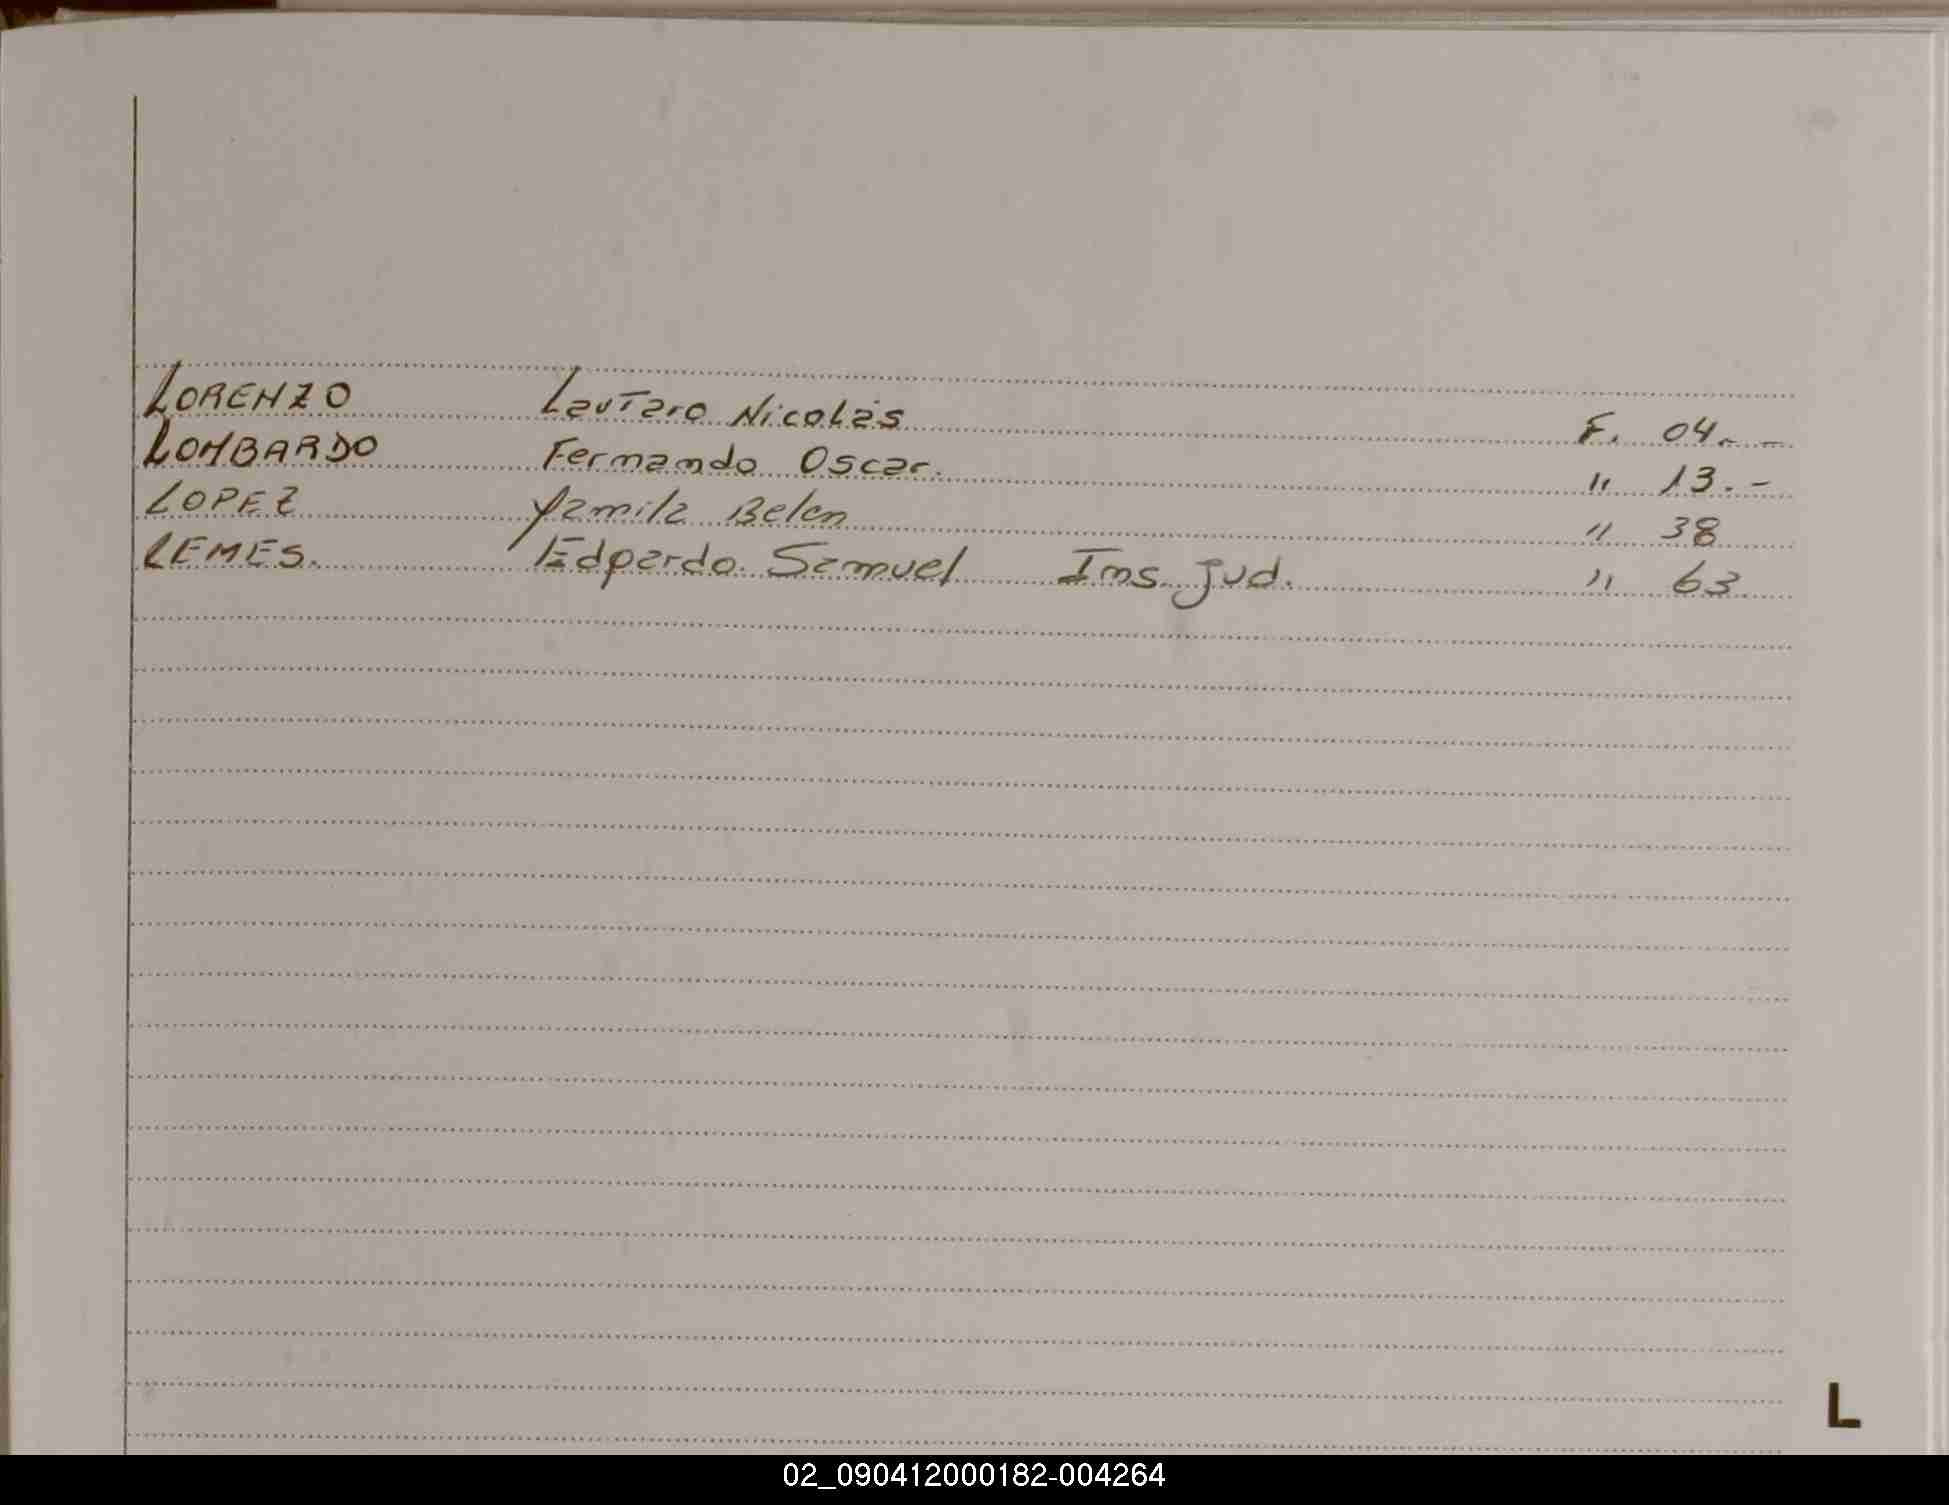 LORENZO Lautaro Nicolás F. 04.-
LOMBARDO Fernando Oscar. " 13.-
LOPEZ Yamila Belen " 38
LEMES. Edgardo Samuel Ins. jud. " 63
L
02_090412000182-004264